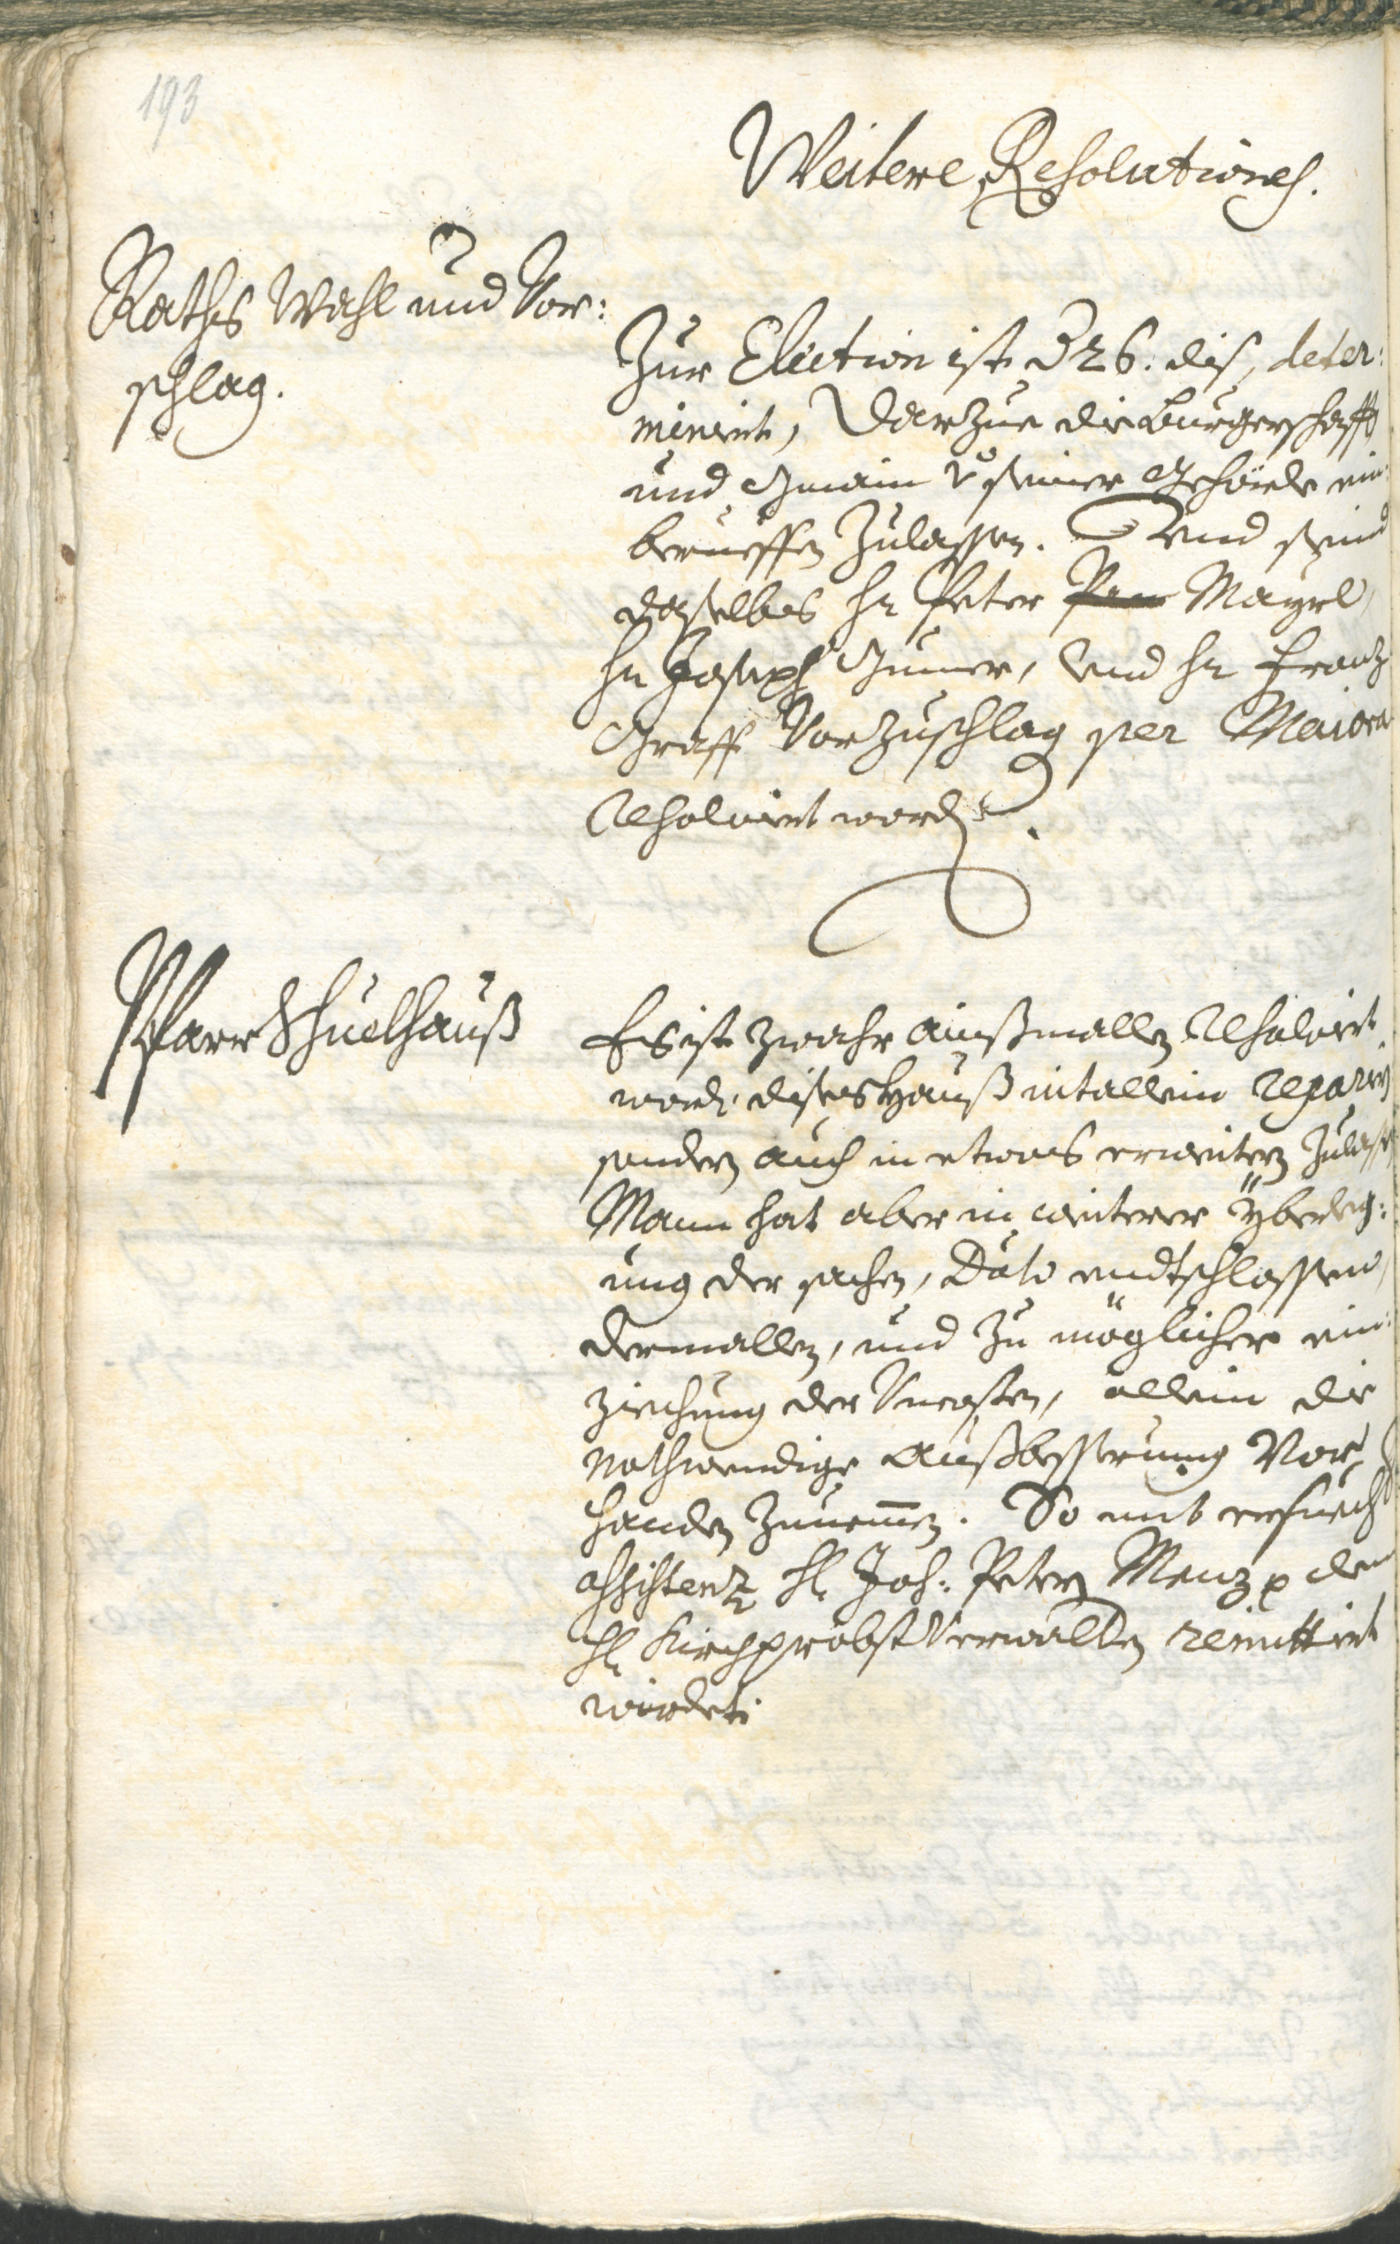 193
Weitere Resolutiones.
Raths Wahl und Vor:
schlag.
Zur Election ist d 26. dis, deter:
minirt, Darzue die Burgerschafft
und Gmain seiner Gehörde ein:
berueffen Zulassen. Vnd seind
daselbs hr Peter Mayrl,
hr Joseph Gumer, Vnd hr Franz
Graff Vorzuschlag per Maiora
Resolvirt word.
Pfarr Schuelhauß
Es ist zwahr ainßmallen Resolvirt
word. dises Hauß nit allein reparirn
sondern auch in etwas erweitern Zulassen
Mann hat aber in weiterer yberleg:
ung der sachen, Dato endtschlossen,
dermallen, und Zu möglicher ein:
ziechung der Vncosten, allein die
nothwendige Außbesserung Vor
handen Zunemmen. So mit ersuech
assistenz hl Joh: Petern Menz p den
hl Kirchprobst Verwalten remittirt
würdet.